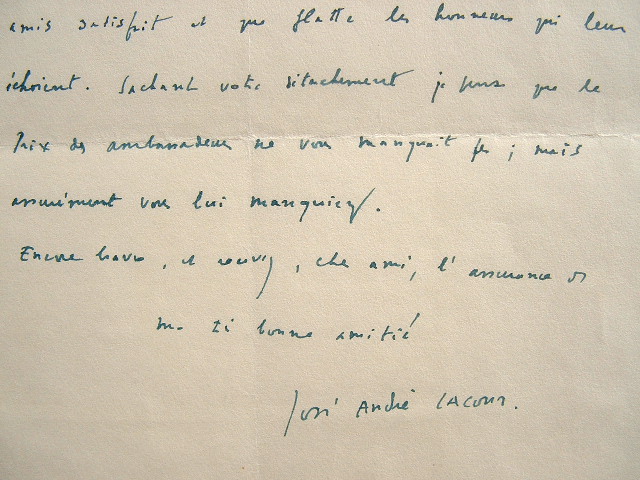 amis satisfait et que flatte les honneurs qui leur
échoient. Sachant votre détachement je pense que le
Prix des ambassadeurs ne vous manquait pas ; mais
assurément vous lui manquiez.
Encore bravo, et recevez, cher ami, l'assurance de
ma très bonne amitié
José André Lacour.